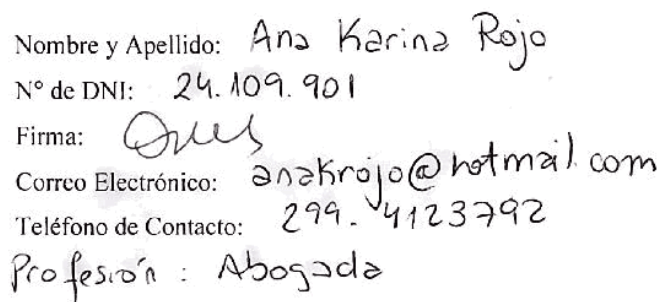 Nombre y Apellido: Ana Karina Rojo
N° de DNI: 24.109.901
Firma:
Correo Electrónico: anakrojo@hotmail.com
Teléfono de Contacto: 299-4123792
Profesión: Abogada